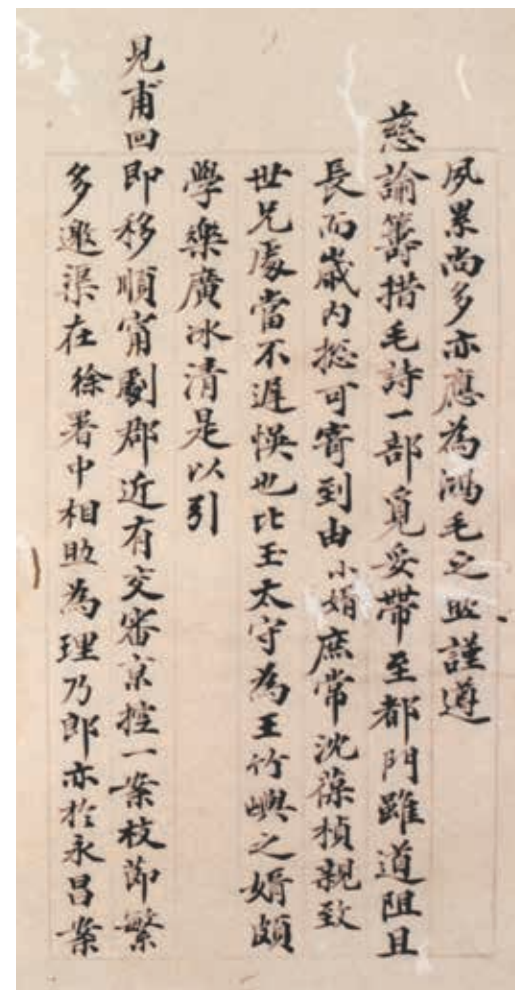 夙累尚多亦應為鴻毛之助謹遵
慈諭籌措毛詩一部覓妥帶至都門雖道阻且
長而歲内總可寄到由小婿庶常沈葆楨親致
世兄處當不遲悮也比玉太守為王竹嶼之婿頗
學樂廣冰清是以引
見甫回即移順甯劇郡近有交審京控一案枝節繁
多邀渠在徐署中相助為理乃郎亦於永昌案